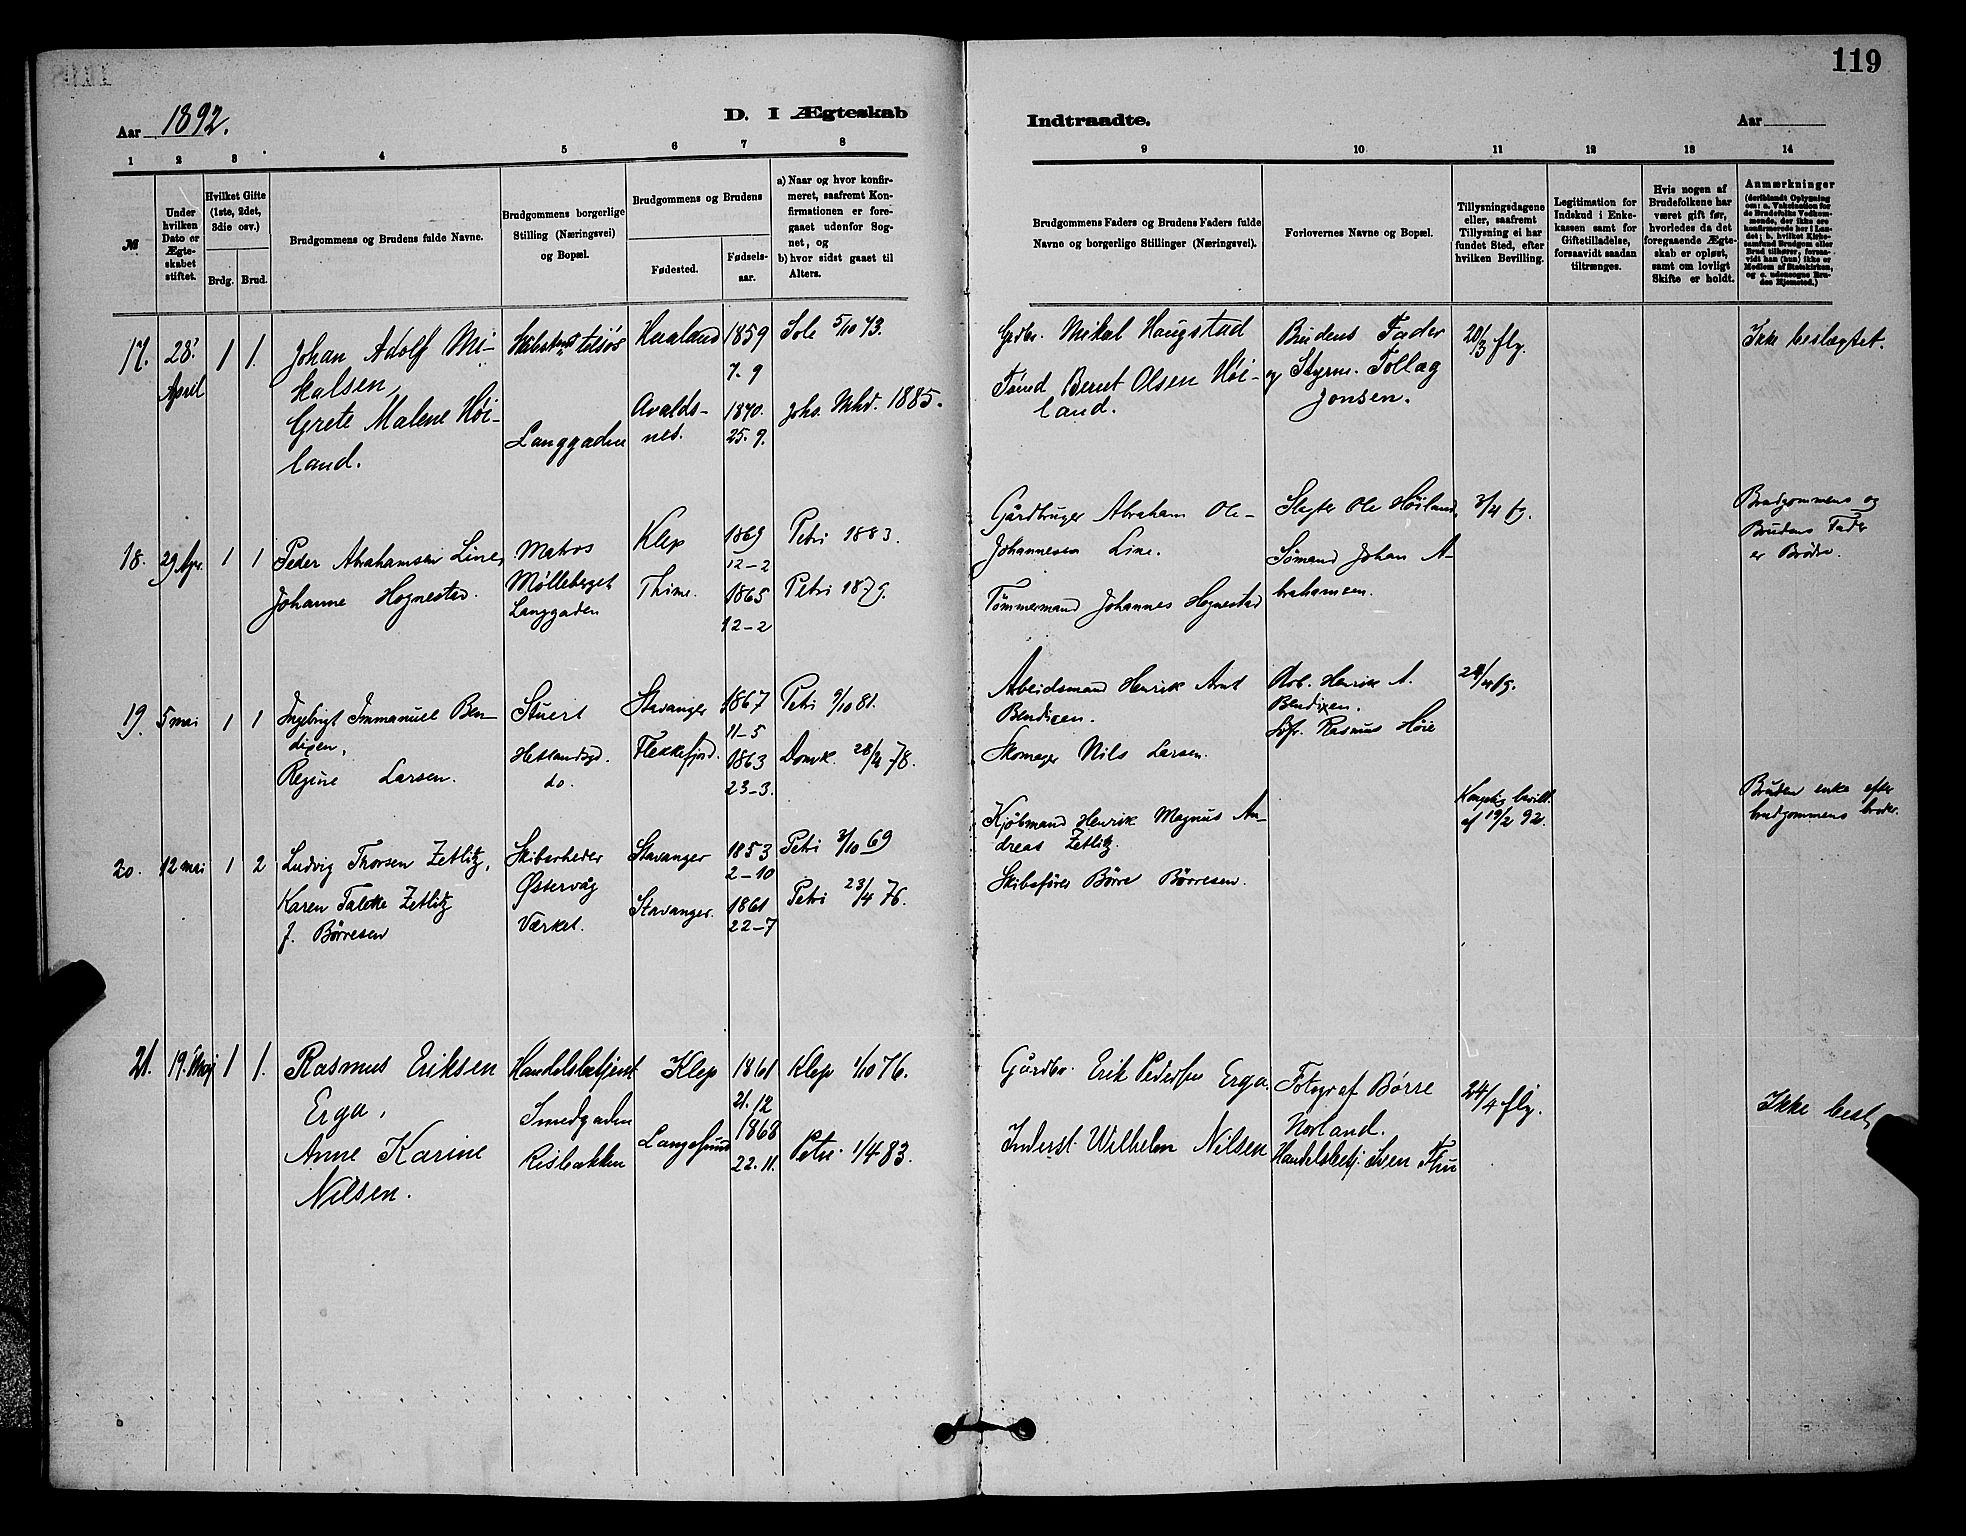 119
Aar 1892.
D. I Ægteskab
Indtraadte.
Aar
1 2 3 4 5 6 7 8 9 10 11 12 13 14
№
Under
hvilken
Dato er
Ægte-
skabet
stiftet.
Hvilket Gifte
(1ste, 2det,
3die osv.)
Brdg. Brud.
Brudgommens og Brudens fulde Navne.
Brudgommens borgerlige
Stilling (Næringsvei)
og Bopæl.
Brudgommens og Brudens
Fødested.
Fødsels-
aar.
a) Naar og hvor konfir-
meret, saafremt Kon-
firmationen er fore-
gaaet udenfor Sog-
net, og
b) hvor sidst gaaet til
Alters.
Brudgommens Faders og Brudens Faders fulde
Navne og borgerlige Stillinger (Næringsvei).
Forlovernes Navne og Bopæl.
Tillysningsdagene
eller, saafremt
Tillysning ei har
fundet Sted, efter
hvilken Bevilling.
Legitimation for
Indskud i Enke-
kassen samt for
Giftetilladelse,
forsaavidt saadan
tiltrænges.
Hvis nogen af
Brudefolkene har
været gift før,
hvorledes da det
foregaaende Ægte-
skab er opløst,
samt om lovligt
Skifte er holdt.
Anmærkninger
(deriblandt Oplysning
om: a. Vakcination for
de Brudefolks Vedkom-
mende, der ikke ere
konfirmerede her i Lan-
det; b. hvilket Kirke-
samfund Brudgom eller
Brud tilhører, forsaa-
vidt han (hun) ikke er
Medlem af Statskirken,
og c. udensogns Bru-
des Hjemsted.)
17.
28'
April
1 1.
Johan Adolf Mi-
kalsen,
Grete Malene Høi-
land.
tilsøs
Langgaden
Haaland
Avalds-
nes.
1859
7. 9
1870.
25. 9.
Sole 5/10 73.
Johs. Mhd. 1885.
Grdbr. Mikal Haugstad
Tømd Bernt Olsen Høi-
land.
Brudens Fader
og Styrm. Tollag
Jonsen.
20/3 flg.
Ikke beslægtet.
18.
29 Apr.
1 1
Peder Abrahamsen Line,
Johanne Hognestad.
Matros
Mølleberget
Langgaden
Klep
Thime.
1869
12-2
1865
12-2
Petri 1883.
Petri 1879.
Gårdbruger Abraham Ole-
Johannesen Line.
Tømmermand Johannes Hognestad
Slagter Ole Høiland,
Sømand Johan A-
brahamsen.
3/4 fg.
Brudgommens og
Brudens Fader
er Brødre.
19.
5 mai
1 1
Ingebrigt Immanuel Ben-
dixen,
Regine Larsen.
Stuert
Hetlandsgd.
do.
Stavanger
Flekkefjord.
1867
11-5
1863
23-3.
Petri 9/10 81.
Domk. 28/4 78.
Arbeidsmand Henrik Arnt
Bendixen.
Skomager Nils Larsen.
Arb. Henrik A.
Bendixen.
Rasmus Høie
24/4 fg.
20.
12 mai
1 2
Ludvig Thorsen Zetlitz,
Karen Talette Zetlitz
f. Børresen
Skibsrheder
Østervåg
Værket.
Stavanger
Stavanger.
1853
2-10
1861
22-7
Petri 3/10 69
Petri 23/4 76.
Kjøbmand Henrik Magnus An-
dreas Zetlitz.
Skibsfører Børre Børresen.
Kongelig bevill.
af 19/2 92.
Bruden enke efter
brudgommens broder.
21.
19. Maj
1 1.
Rasmus Eriksen
Erga,
Anne Karine
Nilsen.
Handelsbetjent
Smedgaden
Risbækken
Klep
Langesund
1861
21. 12
1868
22. 11.
Klep 1/10 76.
Petri 1/4 83.
Gårdbr. Erik Pedersen Erga.
Inderst Wilhelm Nilsen
Fotograf Børre
Norland.
Handelsbetj. Sven Thu
24/4 flg.
Ikke besl.